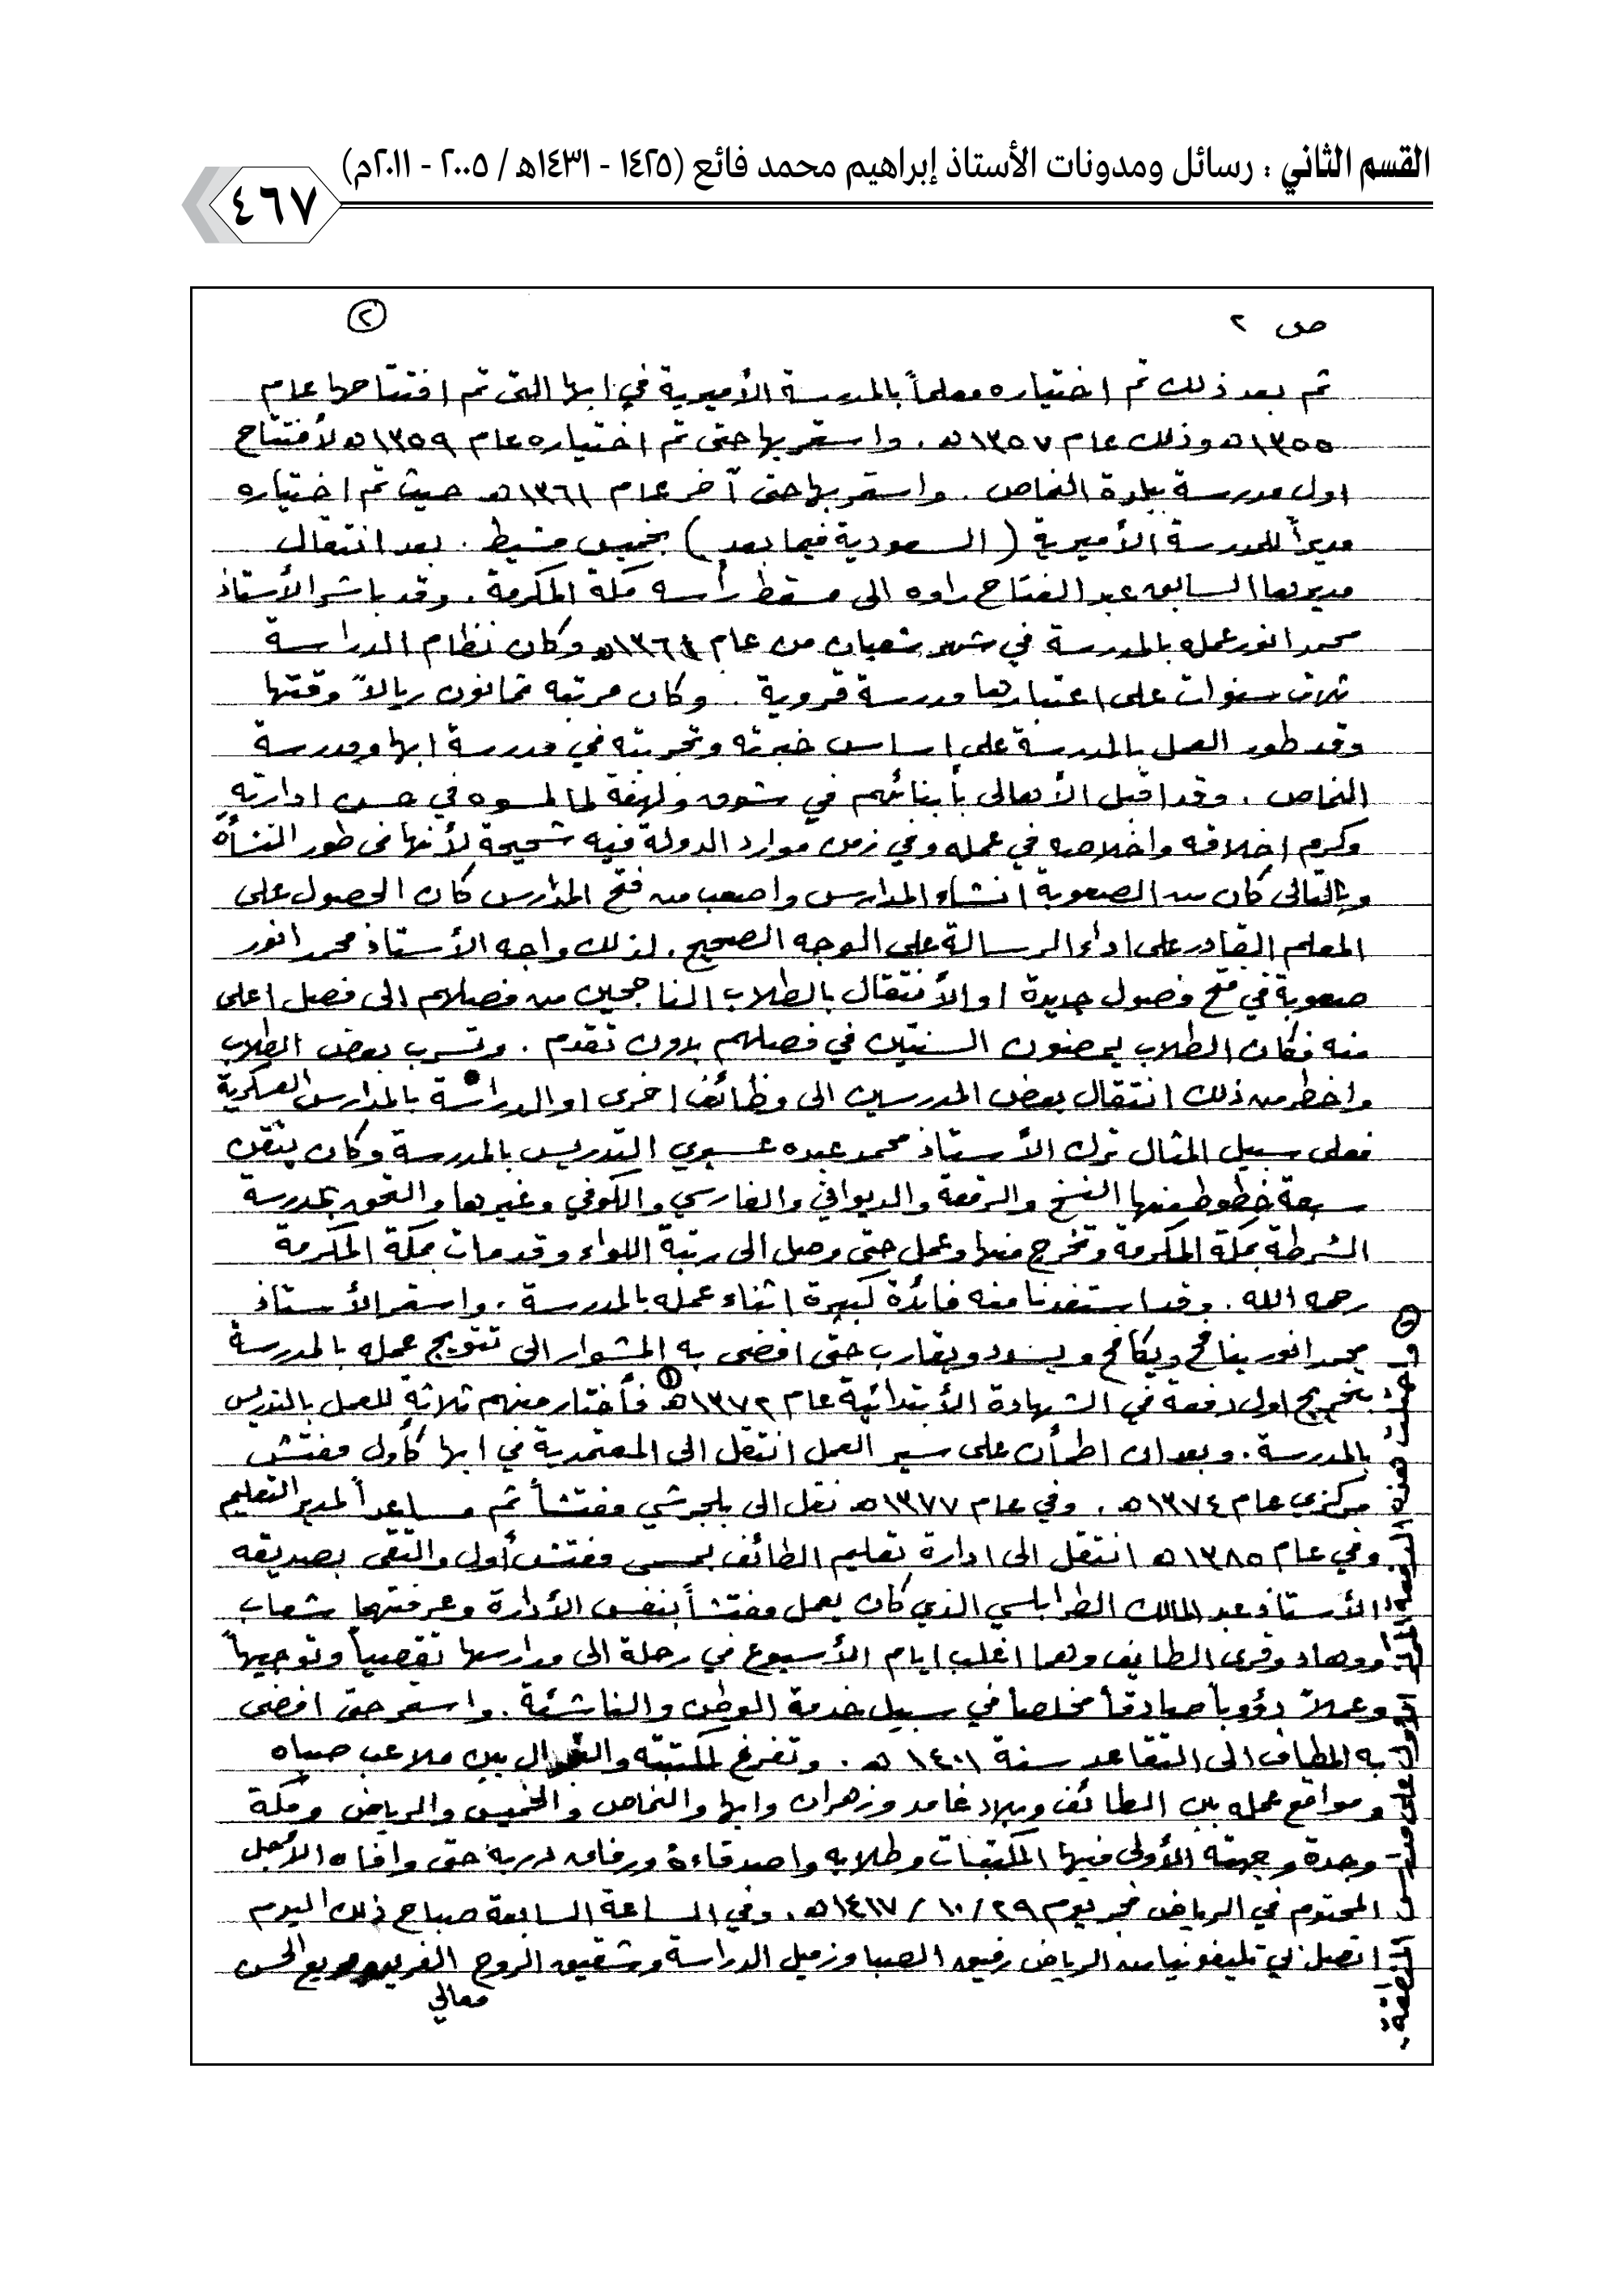 القسم الثاني : رسائل ومدونات الأستاذ إبراهيم محمد فائع (١٤٢٥ - ١٤٣١هـ / ٢٠٠٥ - ٢٠١١م)
٤٦٧
ص ٢
٢
ثم بعد ذلك تم اختياره معلماً بالمدرسة الأميرية في ابها التي تم افتتاحها عام
١٣٥٥هـ وذلك عام ١٣٥٧هـ . واستمر بها حتى تم اختياره عام ١٣٥٩هـ لأفتتاح
اول مدرسة ببلدة النماص . واستمر بها حتى آخر عام ١٣٦١هـ حيث تم اختياره
مديراً للمدرسة الأميرية ( السعودية فيما بعد ) بخميس مشيط . بعد انتقال
مديرها السابق عبد الفتاح راوه الى مسقط رأسه مكة المكرمة . وقد باشر الأستاذ
محمد انور عمله بالمدرسة في شهر شعبان من عام ١٣٦٤هـ وكان نظام الدراسة
ثلاث سنوات على اعتبارها مدرسة قروية . وكان مرتبه ثمانون ريالاً وقتها
وقد طور العمل بالمدرسة على اساس خبرته وتجربته في مدرسة ابها ومدرسة
النماص . وقد اقبل الأهالى بأبنائهم في شوق ولهفة لما لمسوه في حسن ادارته
وكرم اخلاقه واخلاصه في عمله وفي زمن موارد الدولة فيه شحيحة لأنها في طور النشأة
وبالتالى كان من الصعوبة انشاء المدارس واصعب من فتح المدارس كان الحصول على
المعلم القادر على اداء الرسالة على الوجه الصحيح . لذلك واجه الأستاذ محمد انور
صعوبة في فتح فصول جديدة او الأنتقال بالطلاب الناجحين من فصلهم الى فصل اعلى
منه فكان الطلاب يمضون السنتين في فصلهم بدون تقدم . وتسرب بعض الطلاب
واخطر من ذلك انتقال بعض المدرسين الى وظائف اخرى او الدراسة بالمدارس العسكرية
فعلى سبيل المثال ترك الأستاذ محمد عبده عسيري التدريس بالمدرسة وكان يتقن
سبعة خطوط منها النسخ والرقعة والديواني والفارسي والكوفي وغيرها والتحق بمدرسة
الشرطة بمكة المكرمة وتخرج منها وعمل حتى وصل الى رتبة اللواء وقد مات بمكة المكرمة
رحمه الله . وقد استفدنا منه فائدة كبيرة اثناء عمله بالمدرسة . واستمر الأستاذ
محمد انور ينافح ويكافح ويسدد ويقارب حتى افضى به المشوار الى تتويج عمله بالمدرسة
بتخريج اول دفعة في الشهادة الأبتدائية عام ١٣٧٢هـ (١) فأختار منهم ثلاثة للعمل بالتدريس
بالمدرسة . وبعد ان اطمأن على سير العمل انتقل الى المعتمدية في ابها كأول مفتش
مركزي عام ١٣٧٤هـ . وفي عام ١٣٧٧هـ نقل الى بلجرشي مفتشاً ثم مساعداً لمدير التعليم
وفي عام ١٣٨٥هـ انتقل الى ادارة تعليم الطائف بمسمى مفتش أول والتقى بصديقه
الأستاذ عبد المالك الطرابلسي الذي كان يعمل مفتشاً بنفس الأدارة وعرفتهما شعاب
ووهاد وقرى الطايف وهما اغلب ايام الأسبوع في رحلة الى مدارسها تقصياً وتوجيهاً
وعملاً دؤوباً صادقاً مخلصاً في سبيل خدمة الوطن والناشئة . واستمر حتى افضى
به المطاف الى التقاعد سنة ١٤٠١هـ . وتفرغ لمكتبته بين ملاعب صباه
ومواقع عمله بين الطائف وبلاد غامد وزهران وابها والنماص والخميس والرياض ومكة
وجدة وجهته الأولى فيها المكتبات وطلابه واصدقاءه ورفاق دربه حتى وافاه الأجل
المحتوم في الرياض فجر يوم ٢٩/ ١٠/ ١٤١٧هـ . وفي الساعة السابعة صباح ذلك اليوم
اتصل بي تليفونيا من الرياض رفيق الصبا وزميل الدراسة وشقيق الروح الفريق الحسن
معالي
(١) واحتلت هذه الدفعة المركز الأول على مدارس المنطقة .